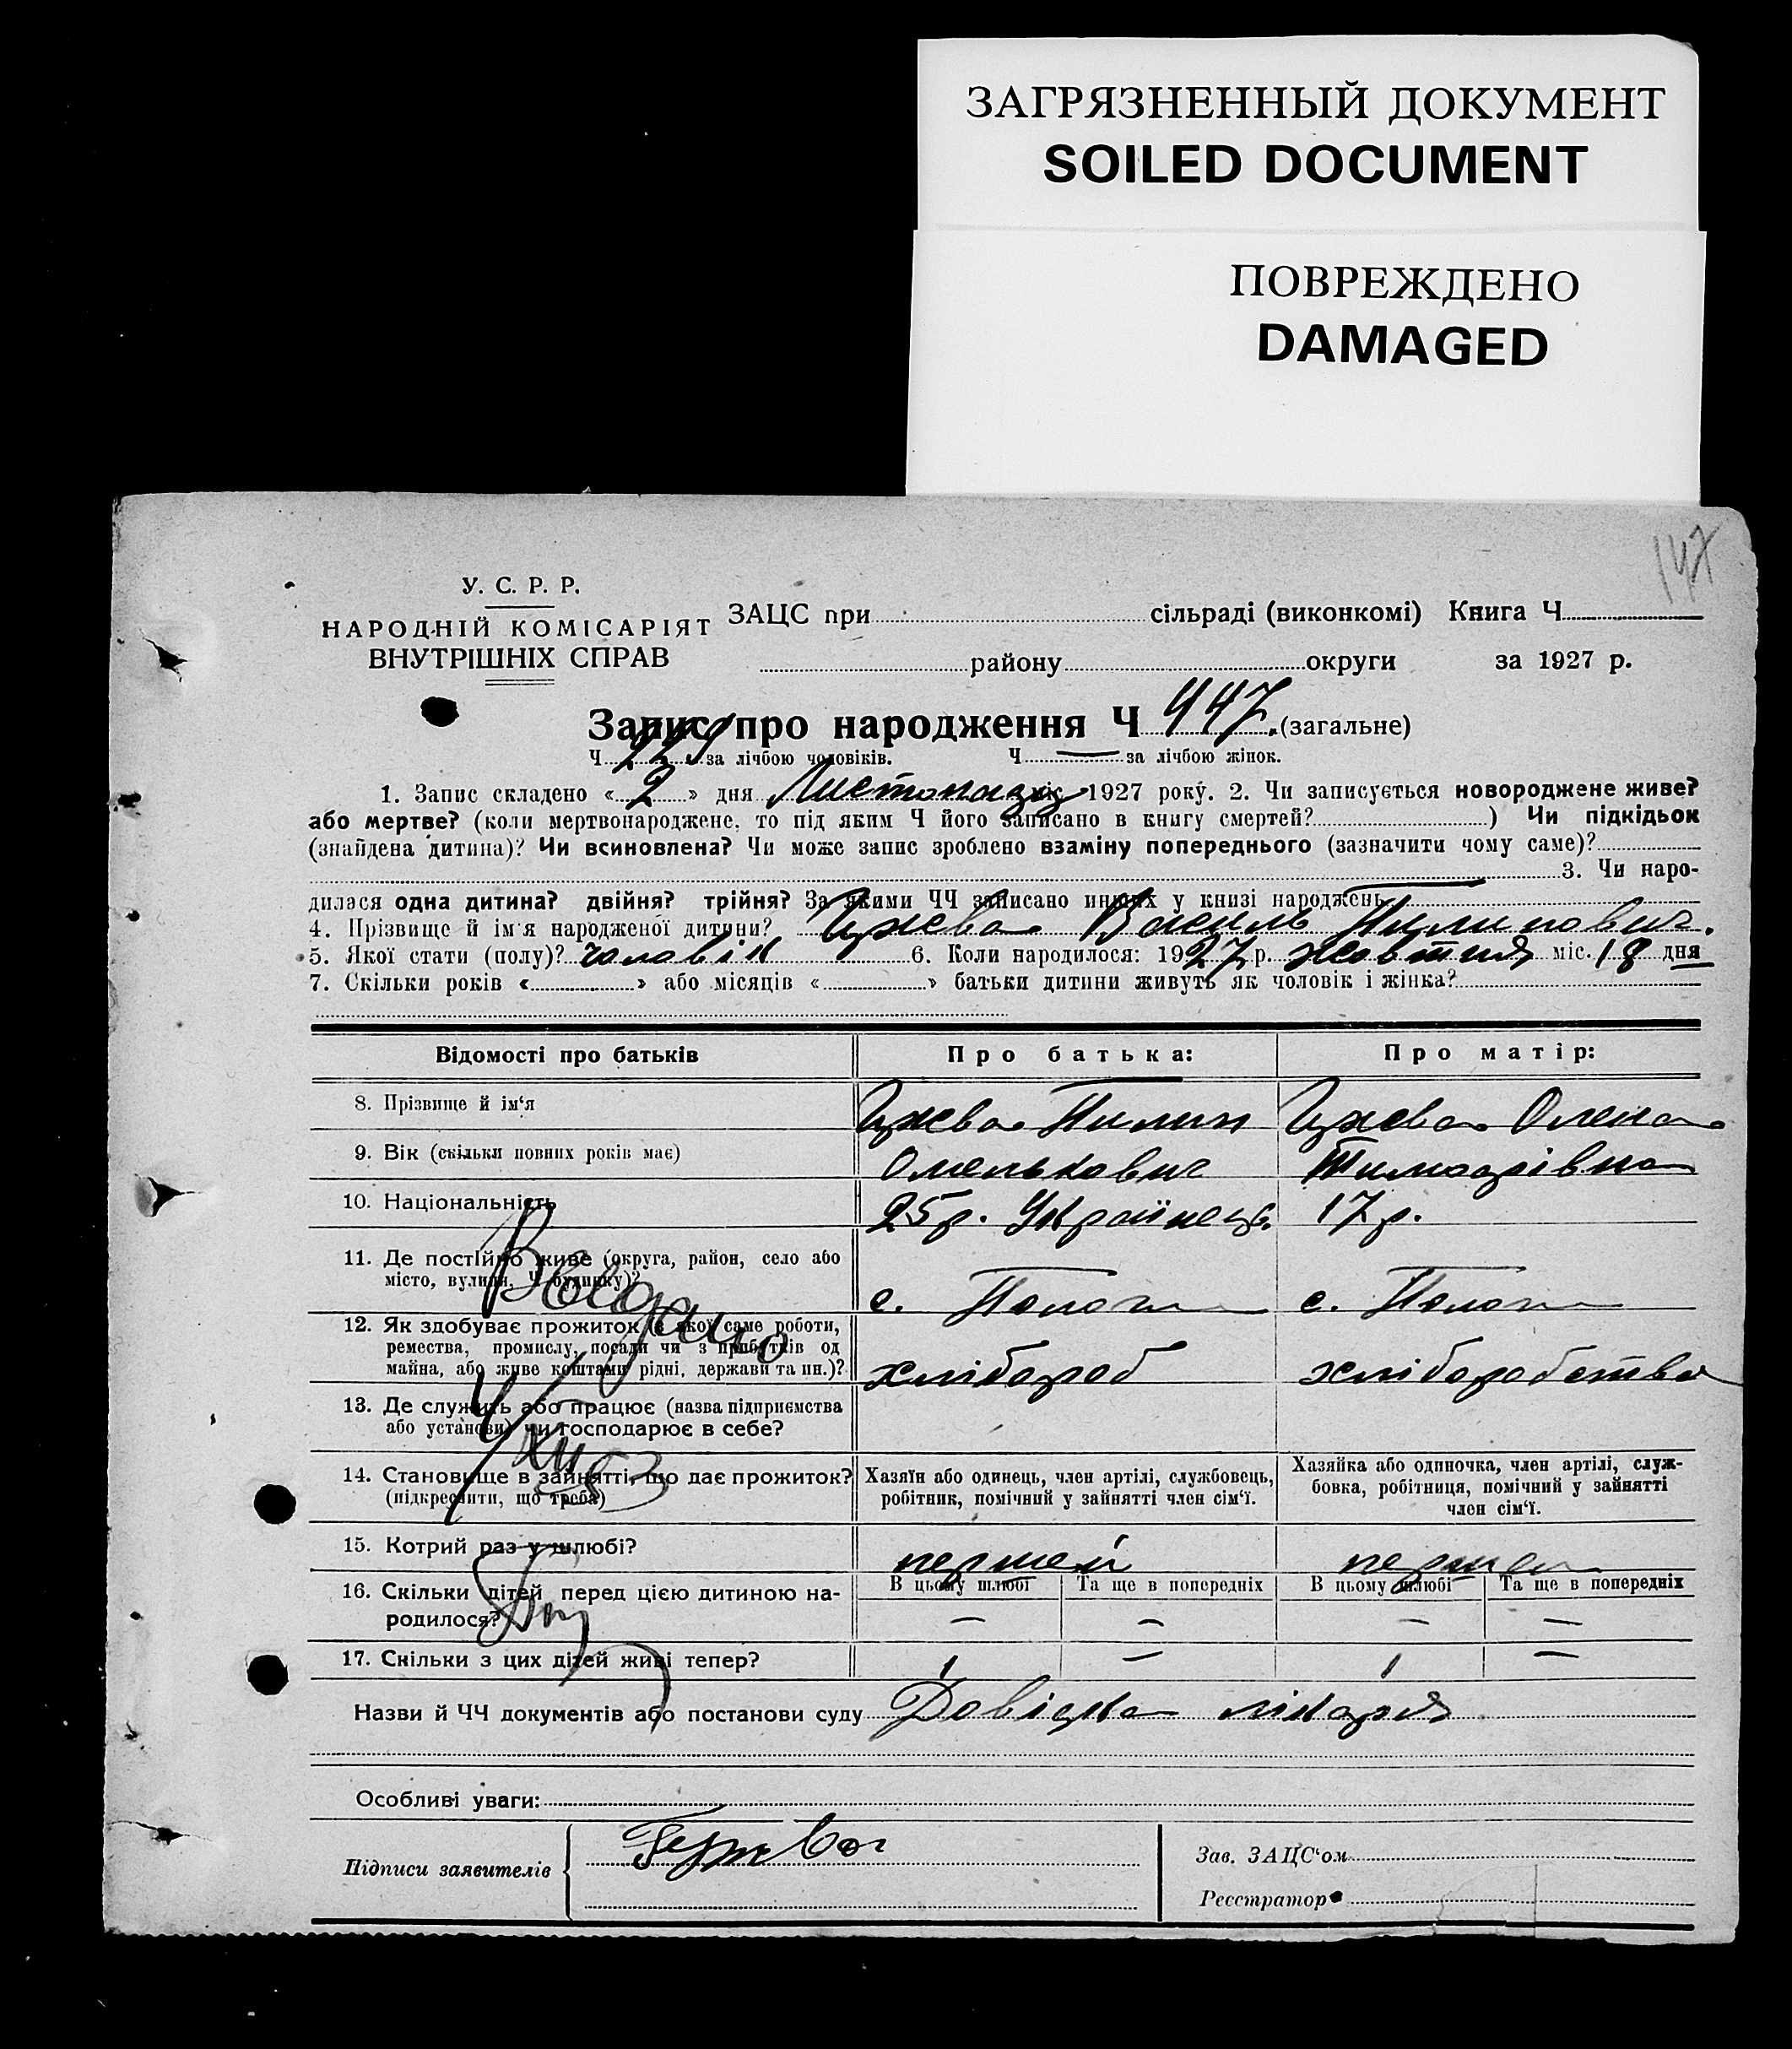 ЗАГРЯЗНЕННЫЙ ДОКУМЕНТ
SOILED DOCUMENT
ПОВРЕЖДЕНО
DAMAGED
147
У. С. Р. Р.
НАРОДНІЙ КОМІСАРІЯТ
ВНУТРІШНІХ СПРАВ
ЗАЦС при сільраді (виконкомі) Книга Ч
району округи за 1927 р.
Запис про народження Ч 447 (загальне)
Ч 229 за лічбою чоловіків. Ч — за лічбою жінок.
1. Запис складено « 2 » дня Листопада міс. 1927 року. 2. Чи записується новороджене живе?
або мертве? (коли мертвонароджене, то під яким Ч його записано в книгу смертей? ) Чи підкідьок
(знайдена дитина)? Чи всиновлена? Чи може запис зроблено взаміну попереднього (зазначити чому саме)?
3. Чи наро-
дилася одна дитина? двійня? трійня? За якими ЧЧ записано инших у книзі народжень
4. Прізвище й ім'я народженої дитини? Василь Пилипович.
5. Якої стати (полу)? чоловік 6. Коли народилося: 1927 р. жовтня міс. 18 дня
7. Скільки років « » або місяців « » батьки дитини живуть як чоловік і жінка?
Відомості про батьків Про батька: Про матір:
8. Прізвище й ім'я Пилип Олена
9. Вік (скільки повних років має) Омелькович
10. Національність 25 р. Українець 17 р.
11. Де постійно живе (округа, район, село або
місто, вулиця, Ч будинку)? с. Пологи с. Пологи
12. Як здобуває прожиток (з якої саме роботи,
ремества, промислу, посади чи з прибутків од
майна, або живе коштами рідні, держави та ин.)? хлібороб хліборобства
13. Де служить або працює (назва підприємства
або установи) чи господарює в себе?
14. Становище в зайнятті, що дає прожиток?
(підкреслити, що треба)
Хазяїн або одинець, член артілі, службовець,
робітник, помічний у зайнятті член сім'ї.
Хазяйка або одиночка, член артілі, служ-
бовка, робітниця, помічний у зайнятті
член сім'ї.
15. Котрий раз у шлюбі? перший перший
В цьому шлюбі Та ще в попередніх В цьому шлюбі Та ще в попередніх
16. Скільки дітей перед цією дитиною на-
родилося? — — — —
17. Скільки з цих дітей живі тепер? 1 — 1 —
Видано
Назви й ЧЧ документів або постанови суду Довідка лікаря
Особливі уваги:
Підписи заявителів
Зав. ЗАЦС'ом
Реєстратор